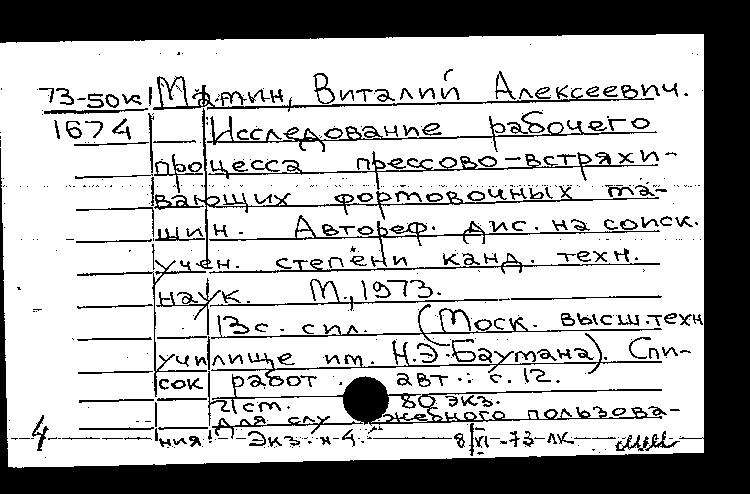 73-50к Матин, Виталий Алексеевич.
1674 Исследование рабочего
процесса прессово-встряхи-
вающих формовочных ма-
шин. Автореф. дис. на соиск.
учен. степени канд. техн.
наук. М., 1973.
13 с. с ил. (Моск. высш. техн
училище им. Н.Э. Баумана). Спи-
сок работ авт.: с. 12.
21 ст. 80 экз.
Для служебного пользова-
ния Экз. н 4. 8/XI-73 ЛК
4